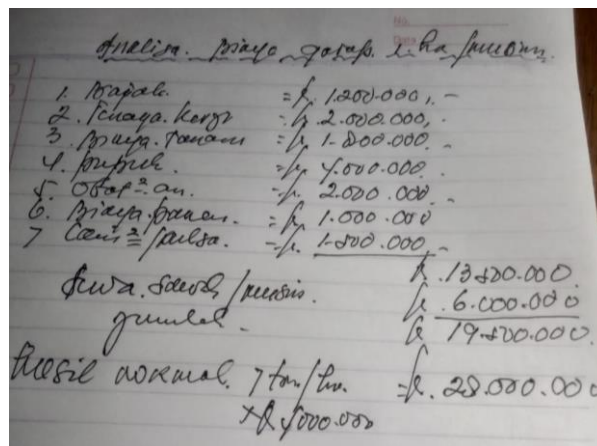 No.
Date
Analisa. Biaya Garap. 1. ha/musim.
1. Bajak = Rp 1.200.000,-
2. Tenaga. Kerja = Rp 2.000.000,-
3 Biaya. Tanam = Rp 1.800.000.-
4. pupuk. = Rp. 4.000.000 -
5. Obat²an. = Rp. 2.000.000 -
6. Biaya. panen. = Rp 1.000.000
7 = Rp. 1.500.000 -
Rp. 13.500.000.
Sewa. Sawah/musim. Rp. 6.000.000
jumlah. Rp 19.500.000.
Hasil normal. 7 ton/ha. = Rp. 28.000.000
x Rp 4000.000